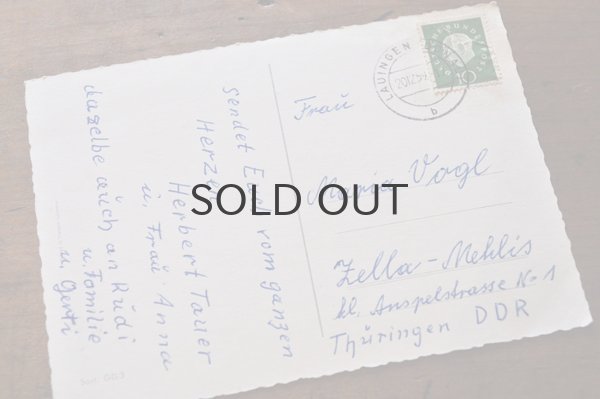 LAUINGEN
b
DEUTSCHE BUNDESPOST
10
Frau
Maria Vogl
Zella-Mehlis
kl. Anspelstrasse K-1
Thüringen DDR
sendet Euch vom ganzen
Herzen
Herbert Tauer
u. Frau Anna
dazelbe auch an Rudi
u. Familie
u. Gerti
SOLD OUT